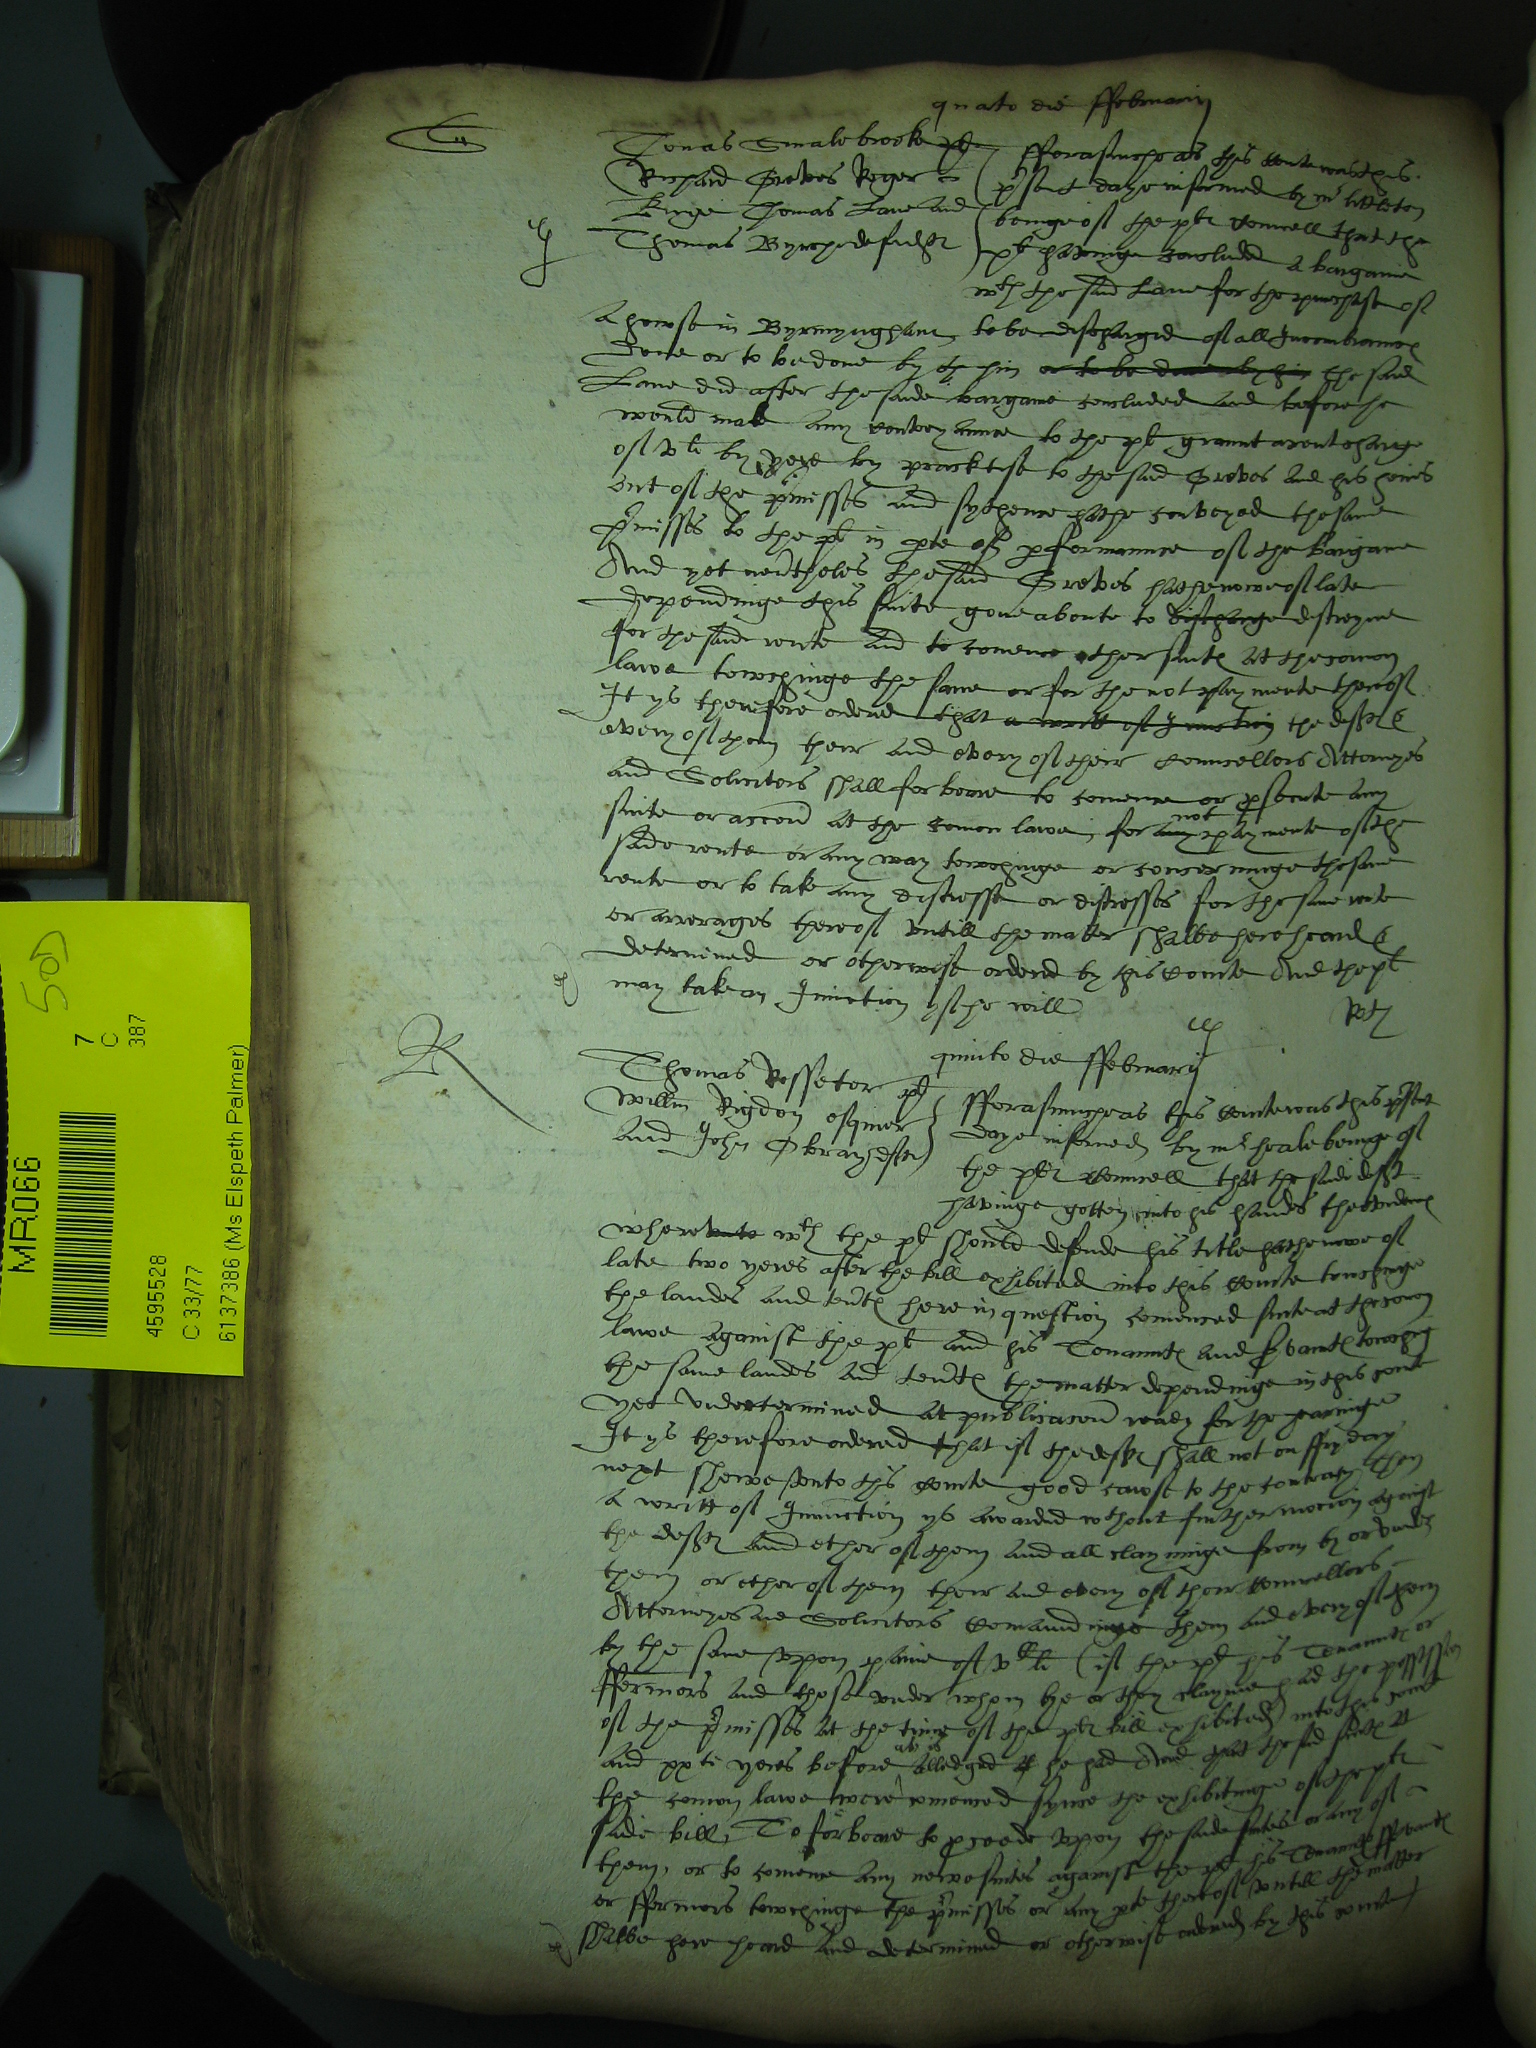 quarto die ffebruarij
Thomas Smalebrooke pl
Richard Greves Roger
Kinge Thomas Lane and
Thomas Byrche defendtes
fforasmuche as this Courte was this
pr'sent daye informed by mr littleton
beinge of the pltes Councell that the
pl havinge concluded a bargaine
wth the said Lane for the purchase of
a howse in Byrmyngham to be dischargid of all Incombrannces
done or to be done by him or to be done by him the said
Lane did after the saide bargaine concluded and before he
would make any conveyannce to the pl graunt a rent charge
of vli by yere by practise to the said Greves and his heires
out of the pr'misses and sythence hathe conveyed the same
pr'misses to the pl in pte of pformannce of the bargaine
And yet nev'theles the said Greves hathe nowe of late
dependinge this suite gone aboute to discharge distreyne
for the saide rente and to comence other suites at the comon
lawe towchinge the same or for the not paymente therof
It ys therefore ordered that a writt of Iniunction the deftes &
every of them their and every of their Councellors Attorneyes
and Solicitors shall forbeare to comence or prosecute any
suite or accon at the comon lawe for any not paymente of the
saide rente or any way towchinge or concerninge the same
rente or to take any distresse or distresses for the same rente
or arrerages therof untill the matter shalbe here heard &
determined or otherwise ordered by this Courte And the pl
may take an Iniunction yf he will
R
quinto die ffebruarij
Thomas Rossetor pl
Willm Rigdon esquier
and John deftes
fforasmuche as this Courte was this pr'sent
daye informed by mr heale beinge of
the pltes Councell that the saide deft
havinge gotten into his handes the evidences
where unto wth the pl should defende his title hathe nowe of
late two yeres after the bill exhibited into this Courte touchinge
the landes and tentes here in question comenced suite at the comon
lawe against the pl and his Tenauntes and servauntes towching
the same landes and tentes the matter dependinge in this courte
yet undetermined at publicacon ready for the hearinge
It ys therefore ordered that if the deftes shall not on ffryday
next shewe unto this Courte good cawse to the contrary then
a writt of Iniunction ys awarded wthout further mocion against
the deftes and ether of them and all clayminge from by or under
them or ether of them their and every of their Councellors
Attorneyes and Solicitors Comaundinge them and every of them
by the same upon paine of vc li (if the pl his Tenauntes or
ffermors and those under whom hee or they clayme had the possession
of the pr'misses at the time of the pltes bill exhibited into this courte
and xxti yeres before as is alledged he had And that the said suites at
the comon lawe were comenced synce the exhibitinge of the pltes
saide bill, To forbeare to proceede upon the saide suites or any of
them, or to comence any newe suites against the pl his Tenauntes servauntes
or ffermors towchinge the pr'misses or any pte therof untill the matter
shalbe here heard and determined or otherwise ordered by this courte
MR066
505
7
C
387
4595528
C 33/77
6137386 (Ms Elspeth Palmer)